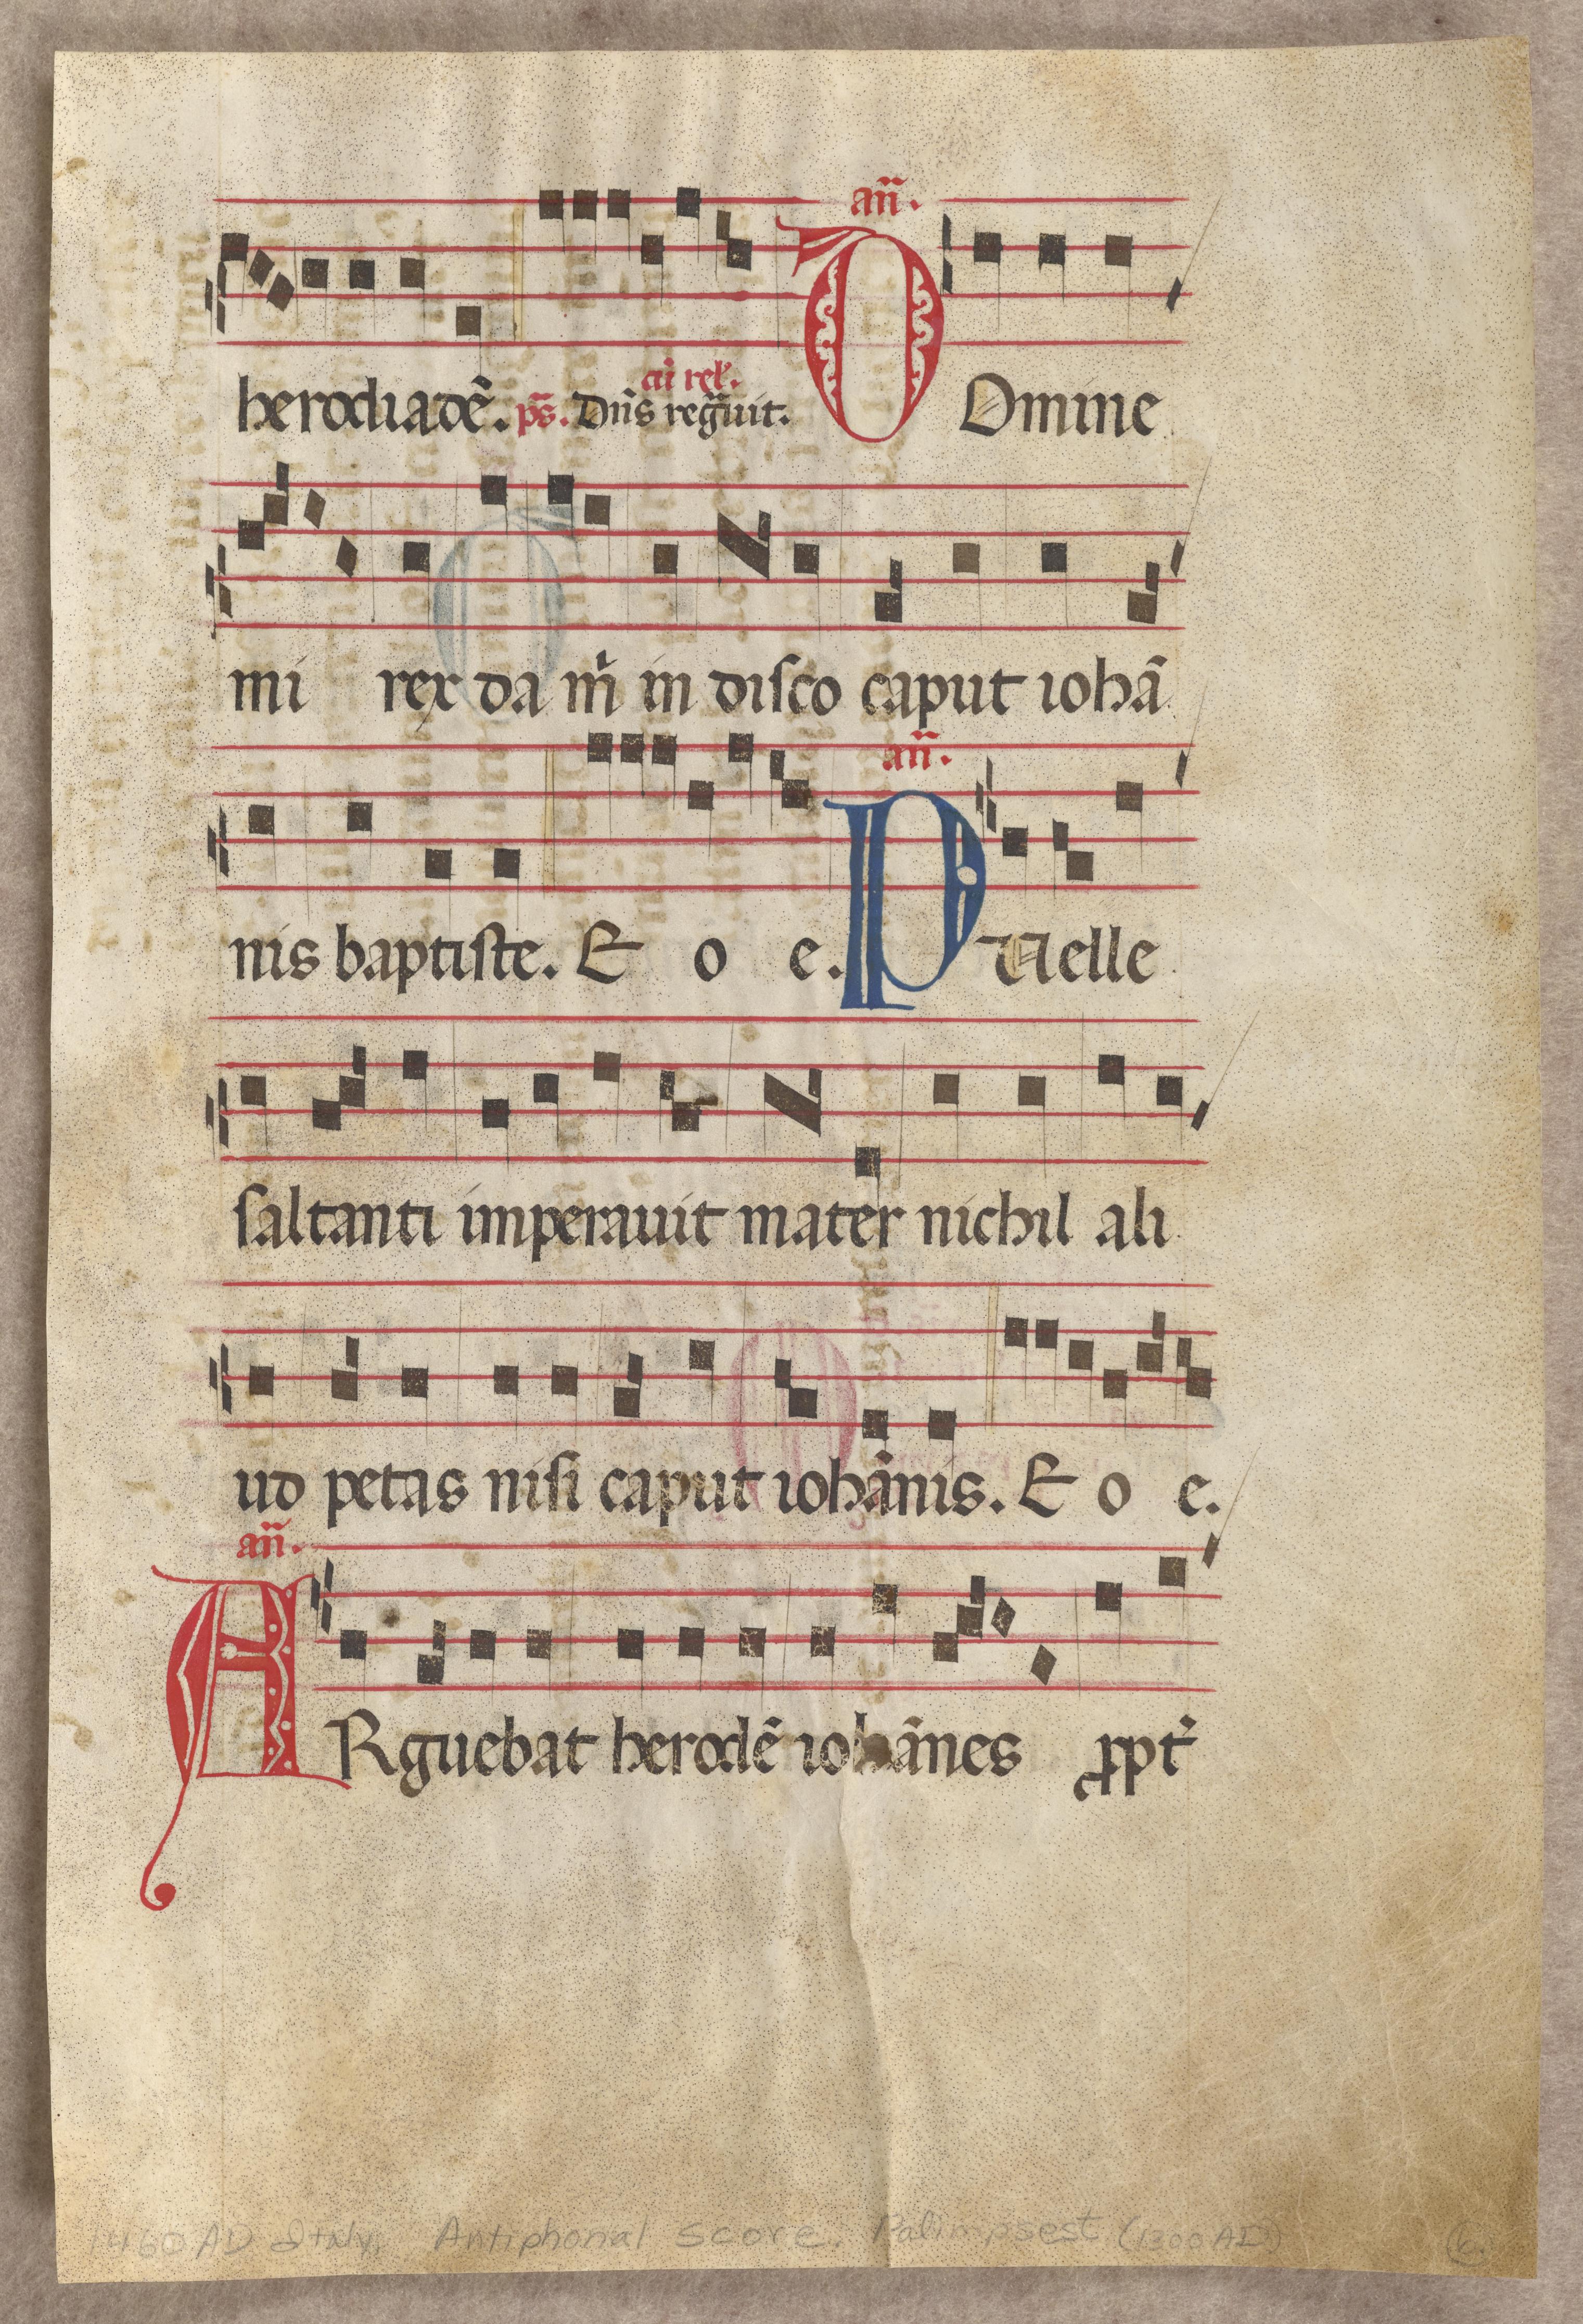 an̄.
cū rel̃.
herodiadē. ps̄. Dn̄s regñuit. DOmine
mi rex da m̄ in disco caput iohā
an̄.
nis baptiste. E o e. PUelle
saltanti imperauit mater nichil ali
ud petas nisi caput iohānis. E o e.
an̄.
ARguebat herodē iohānes ꝓpt̄
1460 AD Italy, Antiphonal Score. Palimpsest (1300 AD)